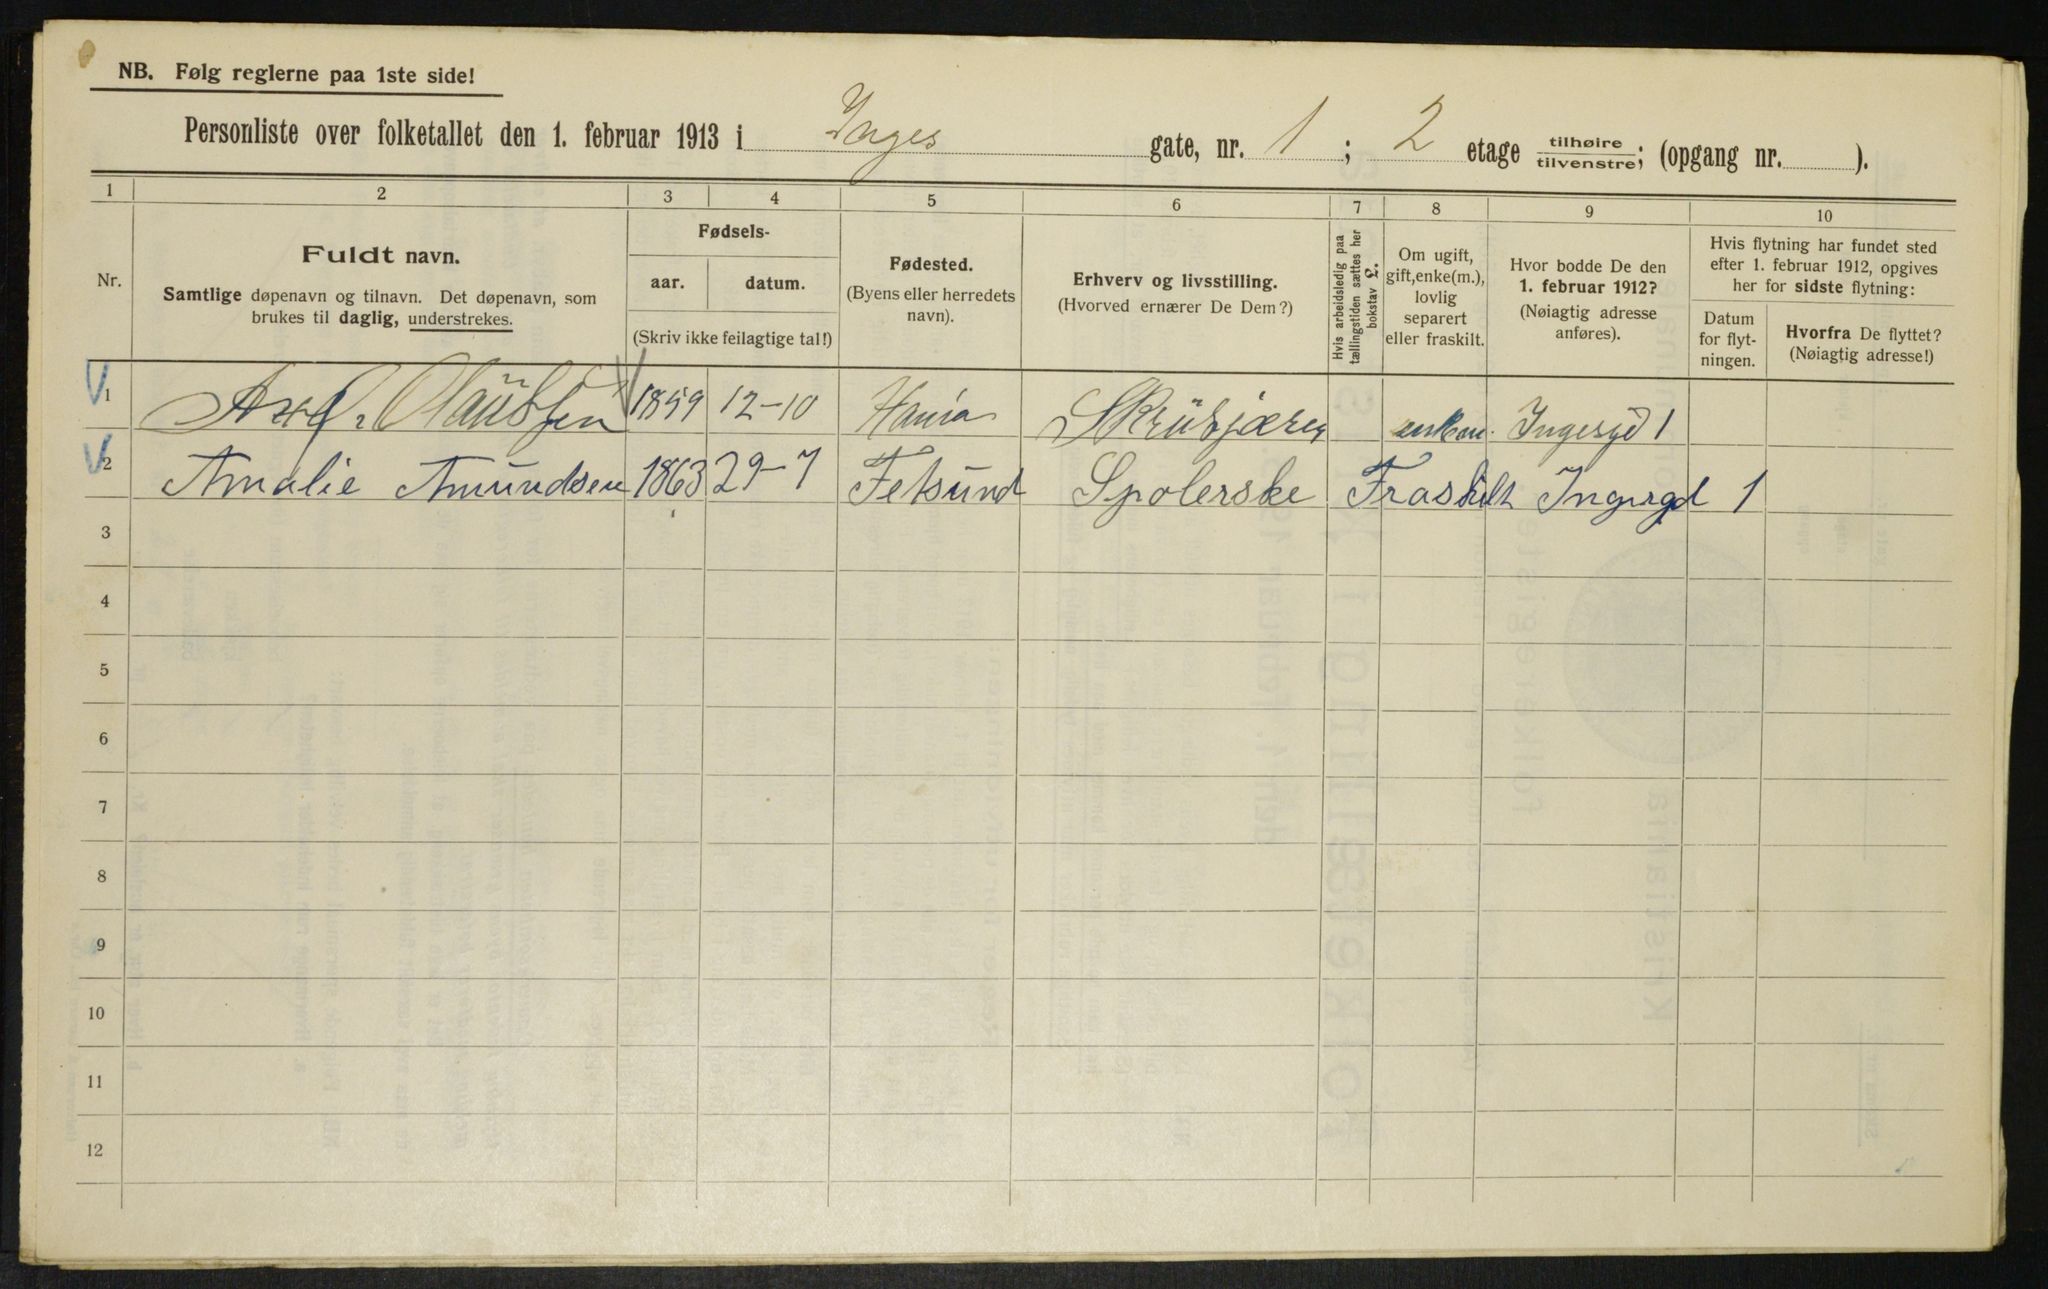 NB. Følg reglerne paa 1ste side!
Personliste over folketallet den 1. februar 1913 i Inges gate, nr. 1; 2 etage tilhøire tilvenstre; (opgang nr. ).
1 2 3 4 5 6 7 8 9 10
Nr.
Fuldt navn.
Samtlige døpenavn og tilnavn. Det døpenavn, som
brukes til daglig, understrekes.
Fødsels-
aar. datum.
(Skriv ikke feilagtige tal!)
Fødested.
(Byens eller herredets
navn).
Erhverv og livsstilling.
(Hvorved ernærer De Dem?)
Hvis arbeidsledig paa
tællingstiden sættes her
bokstav £.
Om ugift,
gift, enke(m.),
lovlig
separert
eller fraskilt.
Hvor bodde De den
1. februar 1912?
(Nøiagtig adresse
anføres).
Hvis flytning har fundet sted
efter 1. februar 1912, opgives
her for sidste flytning:
Datum
for flyt-
ningen.
Hvorfra De flyttet?
(Nøiagtig adresse!)
1 Olaussen 1859 12-10 Skrubjærer enkem. Ingesgd 1
2 Amalie Amundsen 1863 29-7 Fetsund Spolerske Fraskilt Ingesgd 1
3
4
5
6
7
8
9
10
11
12